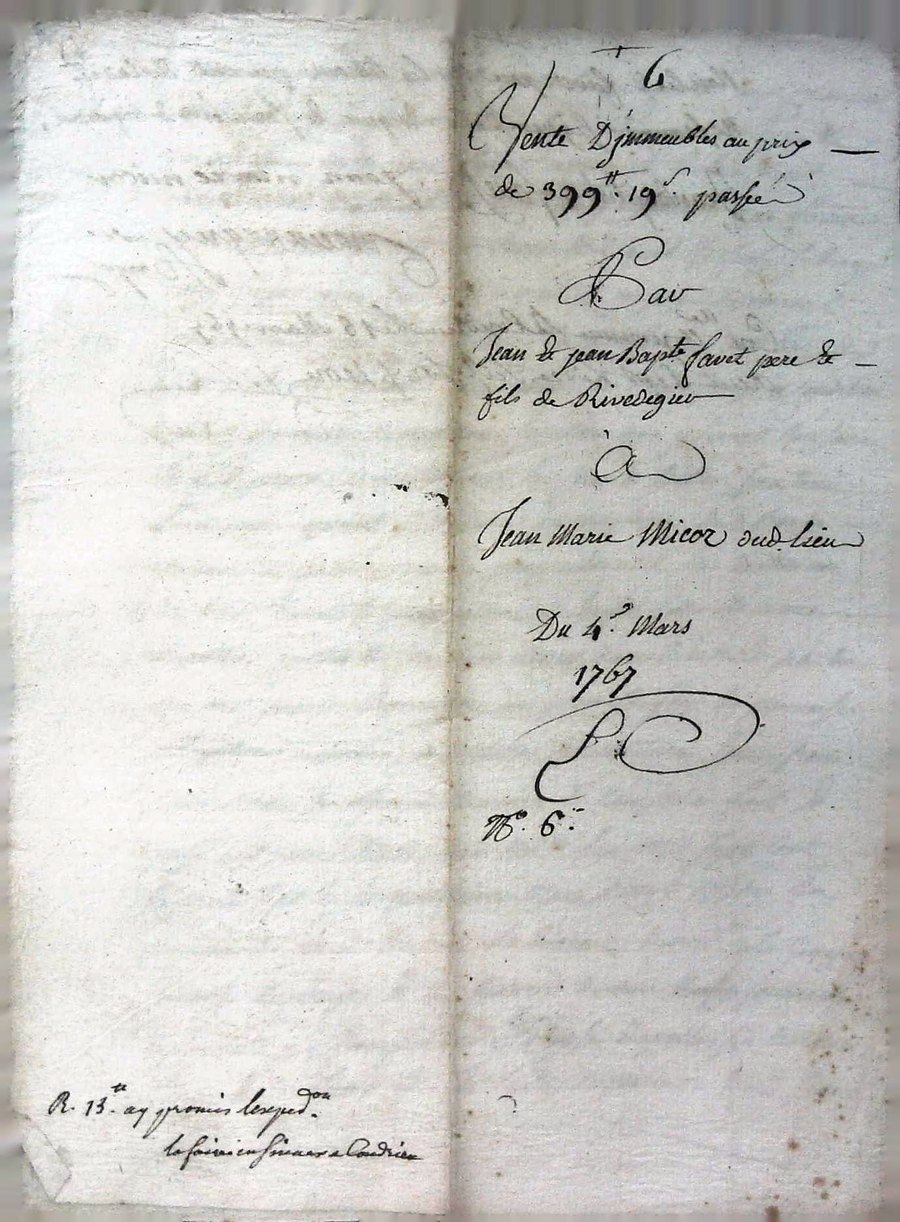 6
Vente D'jmmeubles au prix
de 399tt. 19s. passée
Par
Jean & jean Bapte favet pere &
fils de Rivedegier
à
Jean Marie Micor dud. lieu
Du 4e. Mars
1767
No. 6.
R. 13tt. ay promis lexpedon.